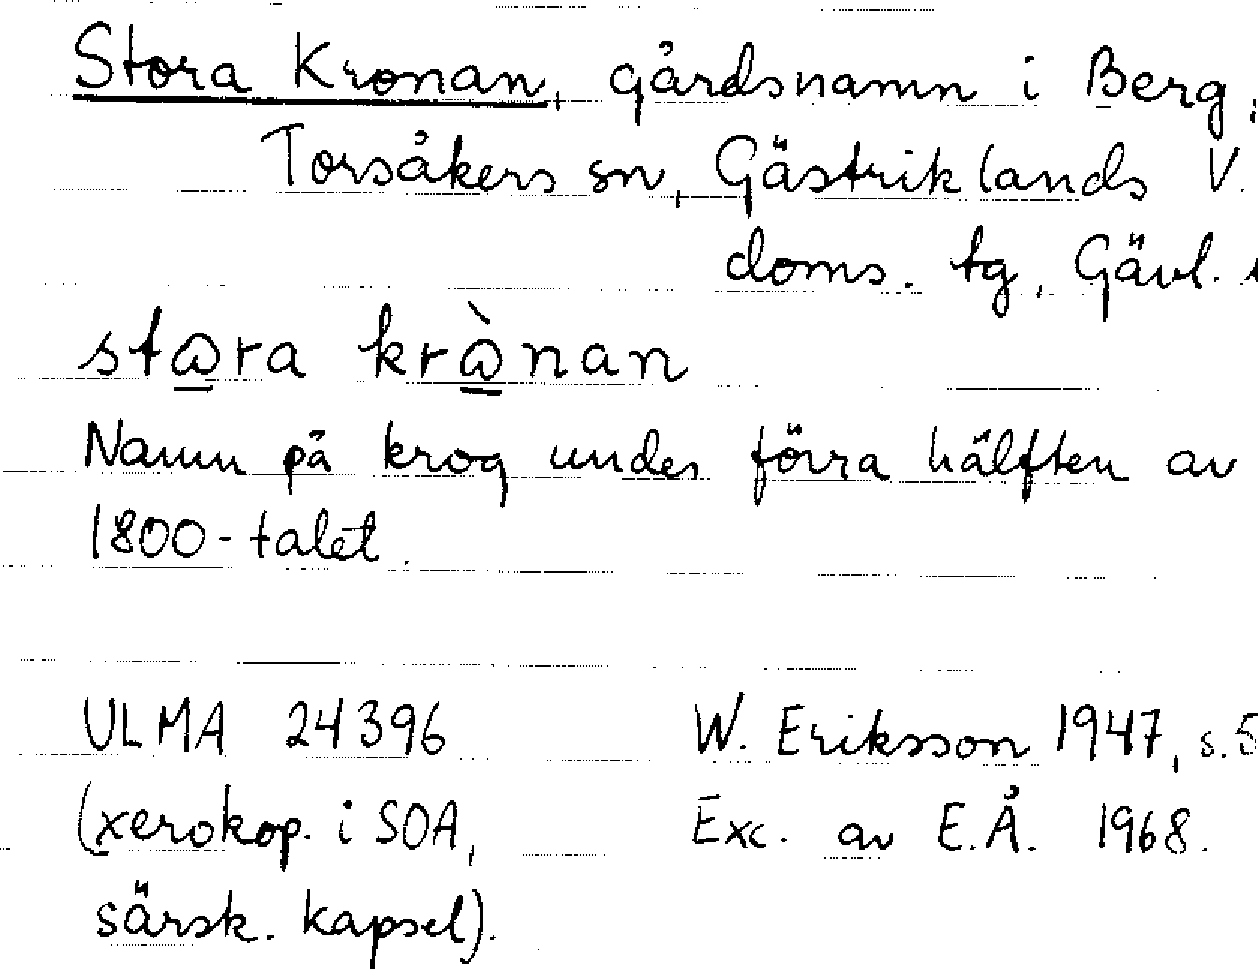 Stora Kronan, gårdsnamn i Berg,
Torsåkers sn, Gästriklands V.
doms. tg, Gävl.
stω̲ra krὼ̲nan
Namn på krog under förra hälften av
1800-talet.
ULMA 24396
(xerokop. i SOA,
särsk. kapsel).
W. Eriksson 1947, s.5
Exc. av E.Å. 1968.